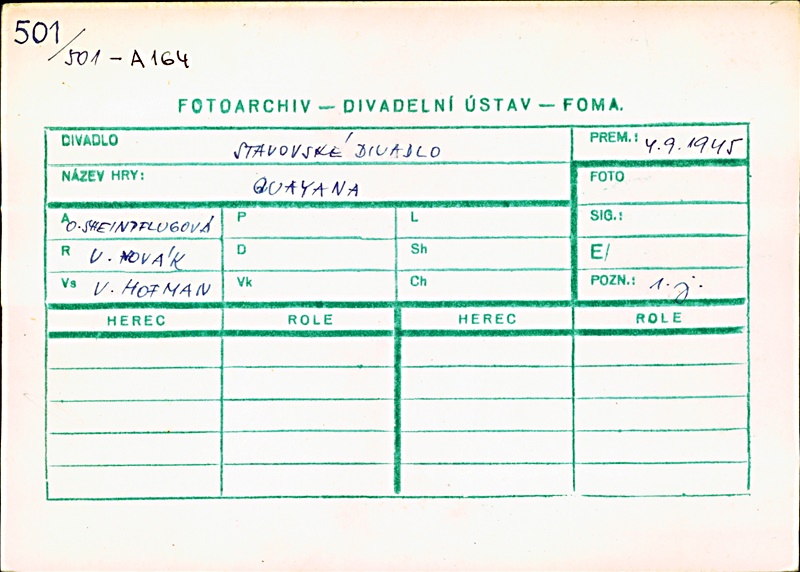 501/501 - A164
FOTOARCHIV — DIVADELNÍ ÚSTAV — FOMA.
DIVADLO STAVOVSKÉ DIVADLO PREM.: 4.9.1945
NÁZEV HRY: QUAYANA FOTO
A O.SHEINPFLUGOVÁ P L SIG.:
R V. NOVÁK D Sh E/
Vs V. HOFMAN Vk Ch POZN.: 1.j.
HEREC ROLE HEREC ROLE